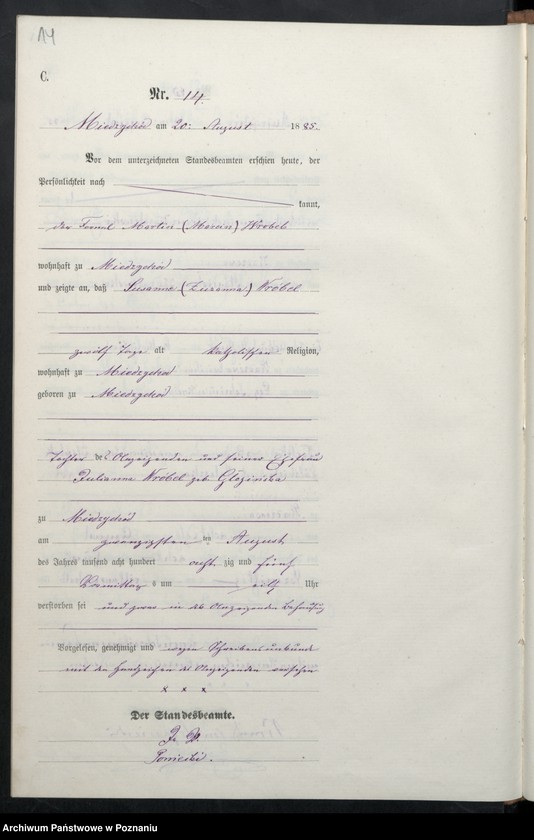 14
C.
Nr. 14.
Miedzychód am 20. August 1885.
Vor dem unterzeichneten Standesbeamten erschien heute, der
Persönlichkeit nach
kannt,
der Martin (Marcin) Wrobel
wohnhaft zu Miedzychód
und zeigte an, daß Susanna (Zuzanna) Wróbel
zwölf Tage alt katholischer Religion,
wohnhaft zu Miedzychód
geboren zu Miedzychód
Tochter des Anzeigenden und seiner Ehefrau
Julianna Wróbel geb.
zu Miedzychód
am zwanzigsten ten August
des Jahres tausend acht hundert acht zig und fünf
Vormittag s um Uhr
verstorben sei und zwar in des Anzeigenden Behausung
Vorgelesen, genehmigt und wegen Schreibensunkunde
mit dem Handzeichen des Anzeigenden versehen
x x x
Der Standesbeamte.
Archiwum Państwowe w Poznaniu